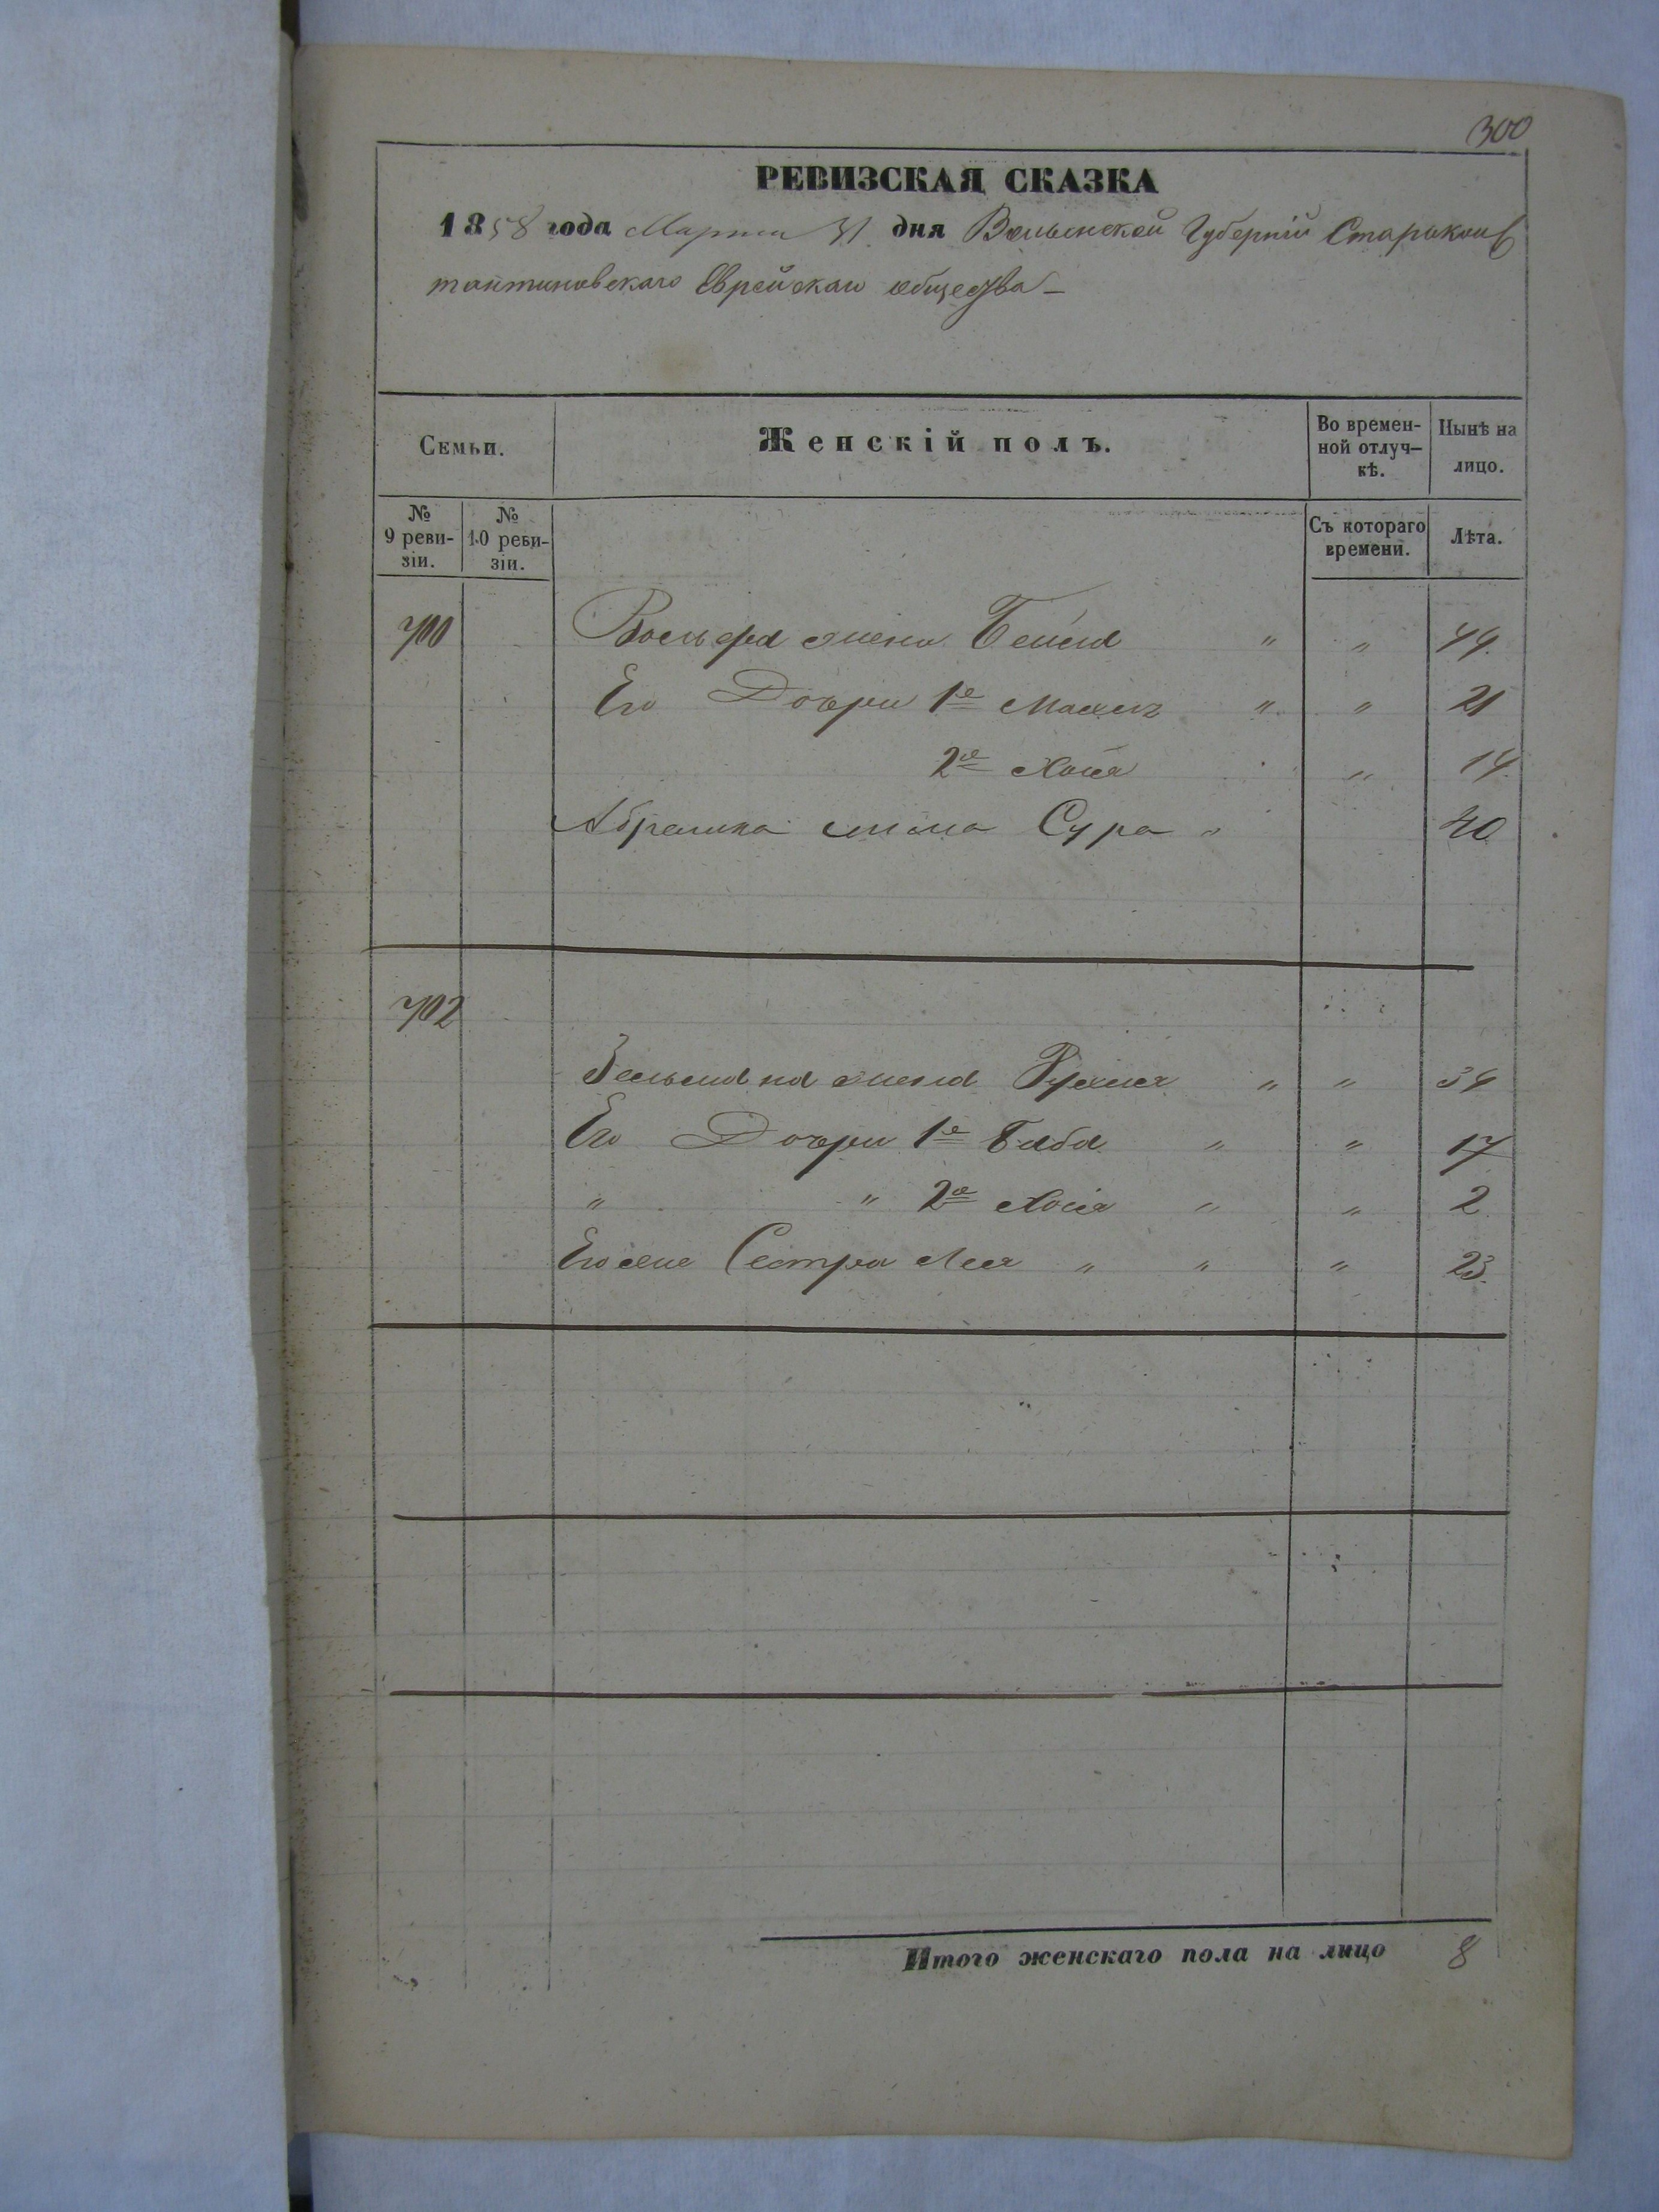 300
РЕВИЗСКАЯ СКАЗКА
1858 года Марта 31 дня Волынской Губерніи Старокон
тантиновскаго Еврейскаго общества
Семьи.
Женскій полъ.
Во времен-
ной отлуч-
кѣ.
Нынѣ на
лицо.
№
9 реви-
зіи.
№
10 реви-
зіи.
Съ котораго
времени.
Лѣта.
700 Вольфа жена Бейла " "
Его Дочери 1е " " 21
2я Хася " 14
Абрамка жена Сура " 40
702
Зельмана жена Рухля " " 34
Его Дочери 1е Баба " " 17
" " 2я Хася " " 2
Его же Сестра Лея " " " 23
Итого женскаго пола на лицо 8